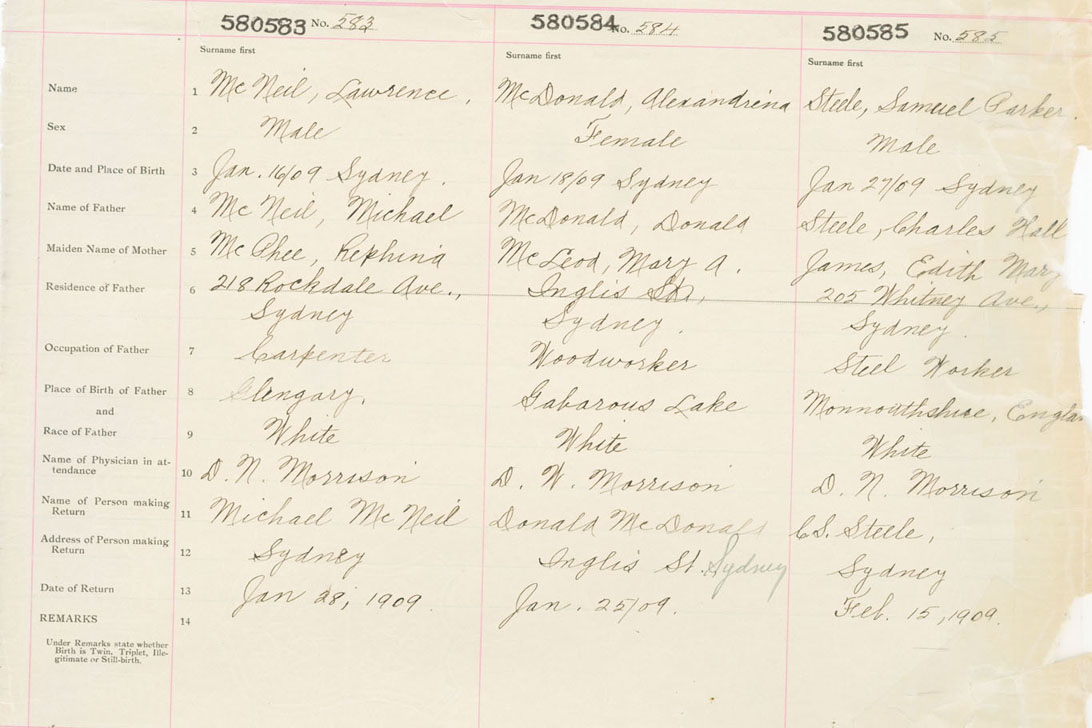 580583 No. 583
580584 No. 584
580585 No. 585
Surname first
Surname first
Surname first
Name 1 McNeil, Lawrence. McDonald, Alexandrina Steele, Samuel Parker.
Sex 2 Male Female Male
Date and Place of Birth 3 Jan. 16/09 Sydney. Jan 18/09 Sydney Jan 27/09 Sydney
Name of Father 4 McNeil, Michael McDonald, Donald Steele, Charles Hall
Maiden Name of Mother 5 McPhee, Rephina McLeod, Mary A. James, Edith Mary
Residence of Father 6 218 Rockdale Ave., Inglis St., 205 Whitney Ave.,
Sydney Sydney. Sydney.
Occupation of Father 7 Carpenter Woodworker Steel Worker
Place of Birth of Father 8 Glengary, Gabarous Lake Monmouthshire, Engla
and
Race of Father 9 White White White
Name of Physician in at-
tendance 10 D. N. Morrison D. W. Morrison D. N. Morrison
Name of Person making
Return 11 Michael McNeil Donald McDonald C.S. Steele,
Address of Person making
Return 12 Sydney Inglis St. Sydney Sydney
Date of Return 13 Jan 28, 1909. Jan. 25/09. Feb. 15, 1909.
REMARKS 14
Under Remarks state whether
Birth is Twin, Triplet, Ille-
gitimate or Still-birth.